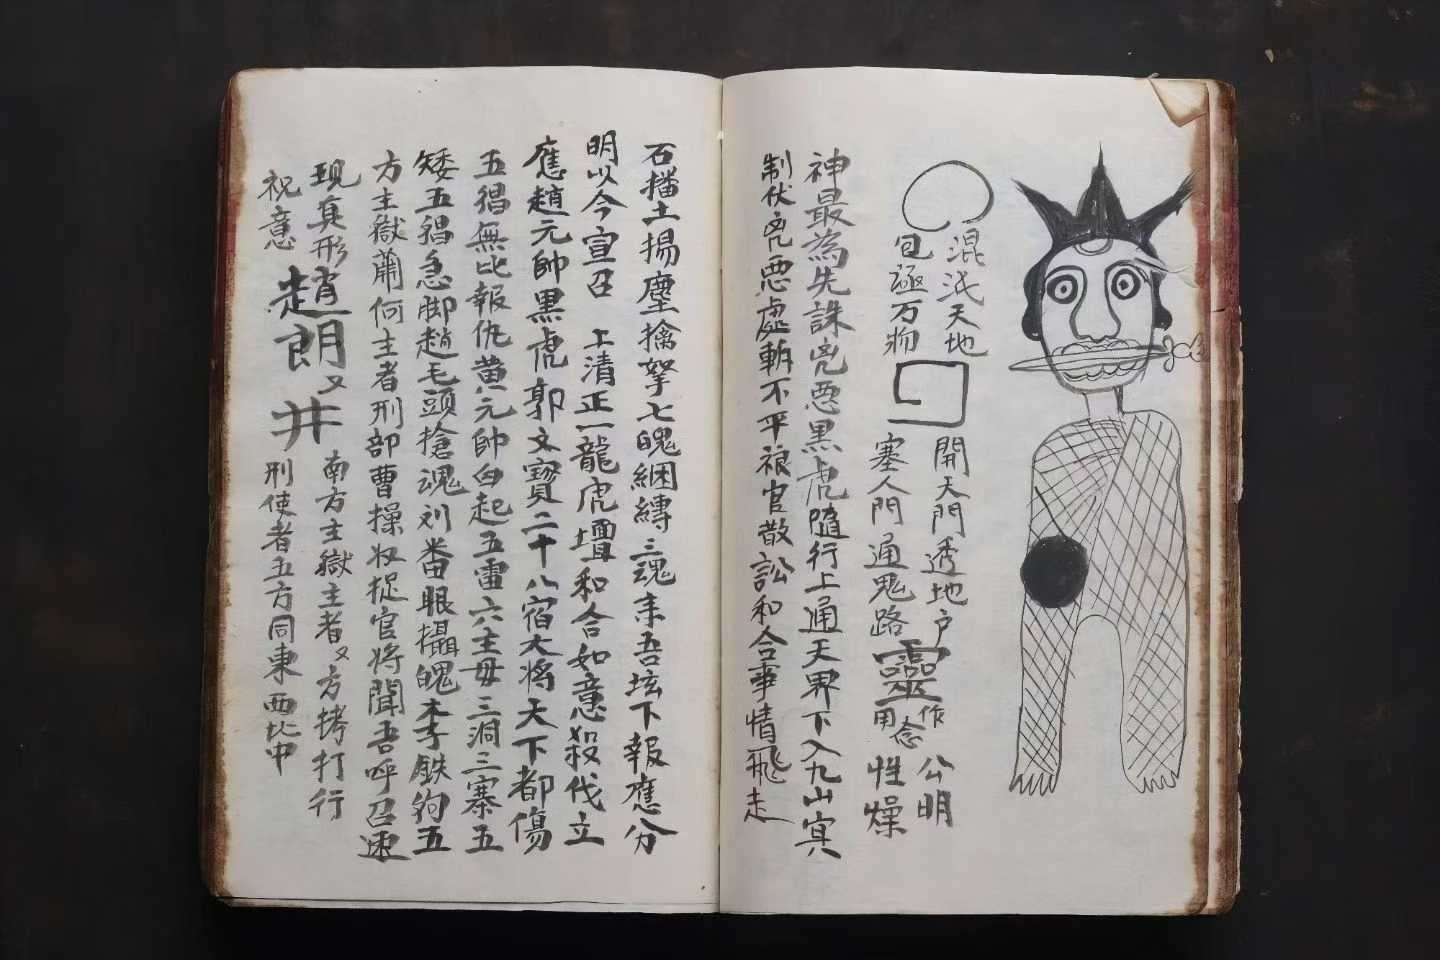 混沌天地
包極万物
開天門透地户
塞人門通鬼路
靈
作念用
公明
性燥
神最為先誅兇惡黒虎隨行上通天界下入九山冥
制伏兇惡處斬不平禄官散訟和合事情飛走
石播土揚塵擒拏七魄綑縛三魂來吾坛下報應分
明以今宣召 上清正一龍虎壇和合如意殺伐立
應趙元帥黒虎郭文寳二十八宿大将天下都傷
五猖無比報仇黄元帥白起五雷六主毋三洞三寨五
矮五猖急脚趙毛頭搶魂刘番眼攝魄李鉄狗五
方主獄蕭何主者刑部曹操収捉官将聞吾呼召速
現真形 南方主獄主者又方拷打行
趙朗又井
祝意 刑使者五方同東西北中